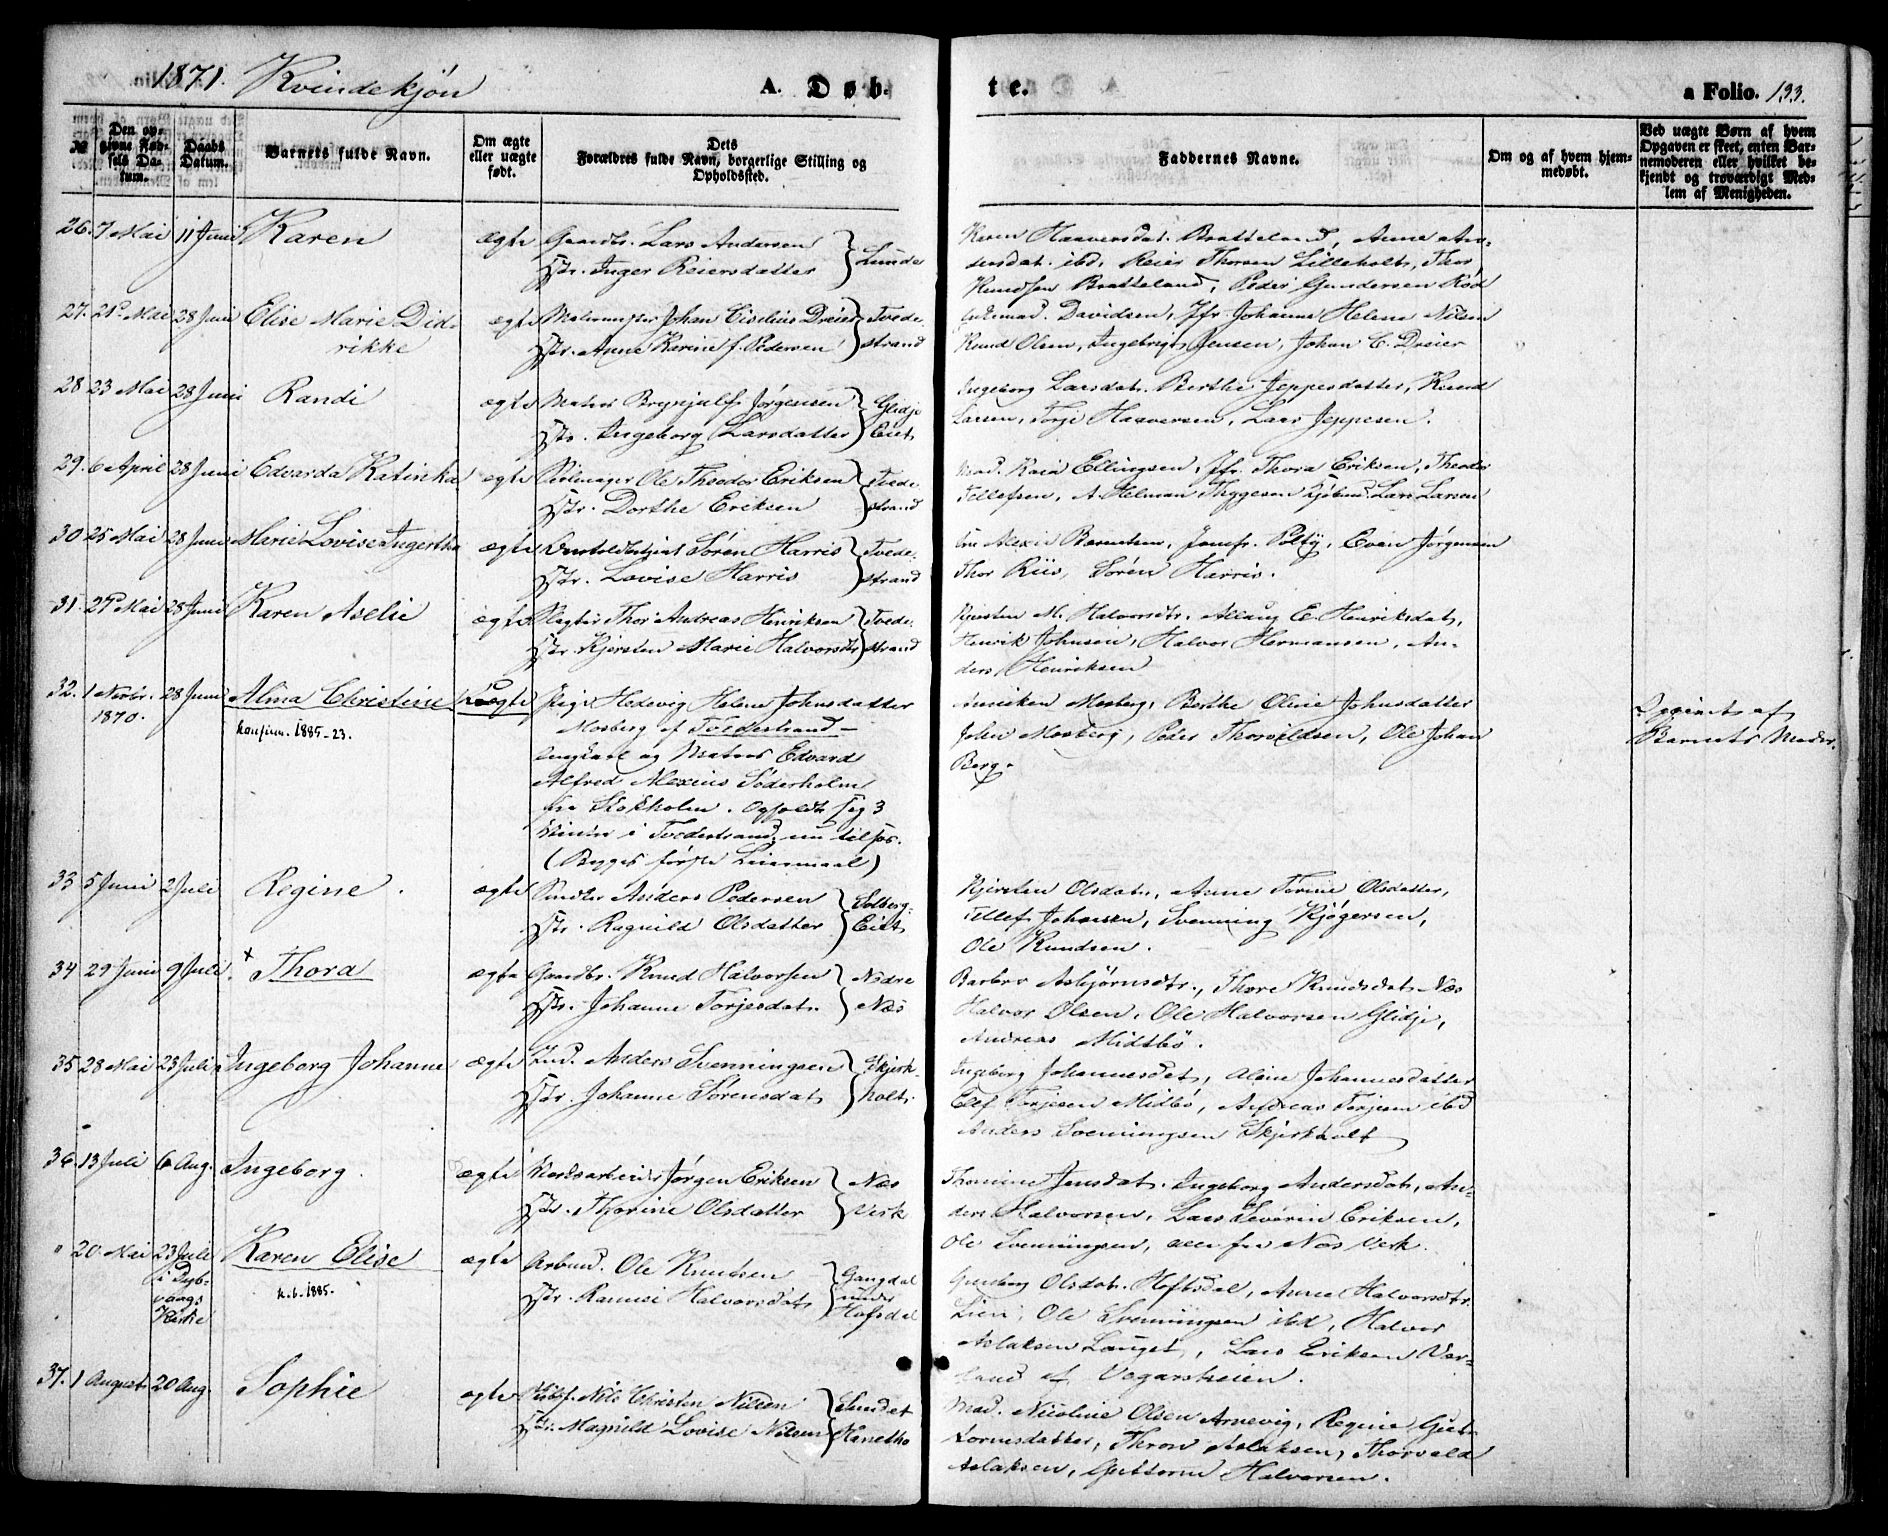 1871. Kvindekjøn A. Døbte. a Folio. 133.
№
Den opgivne Fødsels Datum.
Daabs Datum.
Barnets fulde Navn.
Om ægte eller uægte født.
Dets Forældres fulde Navn, borgerlige Stilling og Opholdssted.
Faddernes Navne.
Om og af hvem hjemmedøbt.
Ved uægte Børn af hvem Opgaven er skeet, enten Barnemoderen eller hvilket bekjendt og troværdigt Medlem af Menigheden.
26. 7 Mai 11 Juni Karen ægte Gaardbr. Lars Andersen
Hstr. Inger Reiersdatter } Lunde
Karen Haaversdat. Bratteland, Anne An-
dersdat. ibd, Reier Thorsen Lilleholt, Thor
Knudsen Bratteland, Peder Gundersen Rød
27. 21 Mai 28 Juni Elise Marie Did-
rikke ægte Johan Cicelius Dreier
Hstr. Anne Karine f. Pedersen } Tvede-
strand
Davidsen, Jfr. Johanne Helene Nilsen
Knud Olsen, Ingebrigt Jensen, Johan C. Dreier
28 23 Mai 28 Juni Randi ægte Matros Brynjulf Jørgensen
Hstr. Ingeborg Larsdatter } Glidje
Eiet
Ingeborg Larsdat. Berthe Jeppesdatter, Knud
Larsen, Torje Haaversen, Lars Jeppesen.
29. 6 April 28 Juni Edvarda Katinka ægte Seilmager Ole Theodor Eriksen
Hstr. Dorthe Eriksen } Tvede-
strand
Mad. Kaia Ellingsen, Jfr. Thora Eriksen, Theodor
Tellefsen, A. Helman Thygesen Kjøbmd. Lars Larsen
30 25 Mai 28 Juni Marie Lovise Ingertha ægte Søren Harris
Hstr. Lovise Harris } Tvede-
strand
Jomfr. Even Jørgensen
Thor Riis, Søren Harris.
31. 21 Mai 28 Juni Karen Aselie ægte Slagter Thor Andreas Henriksen
Hstr Kjersten Marie Halvorsdtr } Tvede-
strand
Kjersten M. Halvorsdtr. Aslaug E. Henriksdat,
Henrik Johnsen, Halvor Hermansen, An-
ders Henriksen
32. 1 Novbr. 1870. 28 Juni Alma Christine
konfirm. 1885-23.
uægte Pige Hedevig Helene Johnsdatter
Mosberg af Tvedestrand
ungkarl og Matros Edvard
Alfred Alexius Søderholm
fra Stokholm. Opholdt sig 3
Vinter i Tvedestrand, nu tilsøs.
(Begges første Leiermaal)
Anniken Mosberg, Berthe Oline Johnsdatter
John Mosberg, Peder Thorvildsen, Ole Johan
Berg.
Opgivet af
Barnets Moder.
33 5 Juni 2 Juli Regine. ægte Anders Pedersen
Hstr. Ragnild Olsdatter } Solberg-
Eiet
Kjersten Olsdat, Anne Torine Olsdatter,
Tellef Johnsen, Svenning Kjøgersen,
Ole Knudsen.
34 29 Juni 9 Juli. + Thora ægte Gaardbr. Knud Halvorsen
Hstr. Johanne Torjesdat. } Nedre
Næs
Barbro Asbjørnsdtr., Thore Knudsdat. Næs
Halvor Olsen, Ole Halvorsen Glidje,
Andreas Midtbø.
35 28 Mai 23 Juli Ingeborg Johanne ægte Ind. Anders Svenningsen
Hstr. Johanne Sørensdat } Skjerk-
holt.
Ingeborg Johannesdat, Aline Johannesdatter
Elef Torjesen Midbø, Andreas Torjesen ibd
Anders Svenningsen Skjerkholt
36. 13 Juli 6 Aug. Ingeborg. ægte Værksarbeider Jørgen Eriksen
Hstr. Thorine Olsdatter } Næs
Verk
Thomine Jensdat. Ingeborg Andersdat, An-
ders Halvorsen, Lars Severin Eriksen,
Ole Svenningsen, alle fra Næs Verk.
" 20 Mai 23 Juli
i Dyb-
vaags
Kirke
Karen Elise
k. 6. 1885.
ægte Arbmd. Ole Knutsen
Hstr. Halvorsdat } Gangdal
under
Hofsdal
Gunborg Olsdat. Hoftsdal, Anne Halvorsdtr.
Lien, Ole Svenningsen ibd, Halvor
Aslaksen Lauget, Lars Eriksen Ver-
land af Vegarsheien.
37. 1 August 20 Aug. Sophie ægte Nils Christen Nilsen
Hstr. Magnild Lovise Nilsen } Sundet
Mad. Nicoline Olsen Arnevig, Regine Gut-
tormsdatter, Thron Aslaksen, Thorvald
Aslaksen, Guttorm Halvorsen.